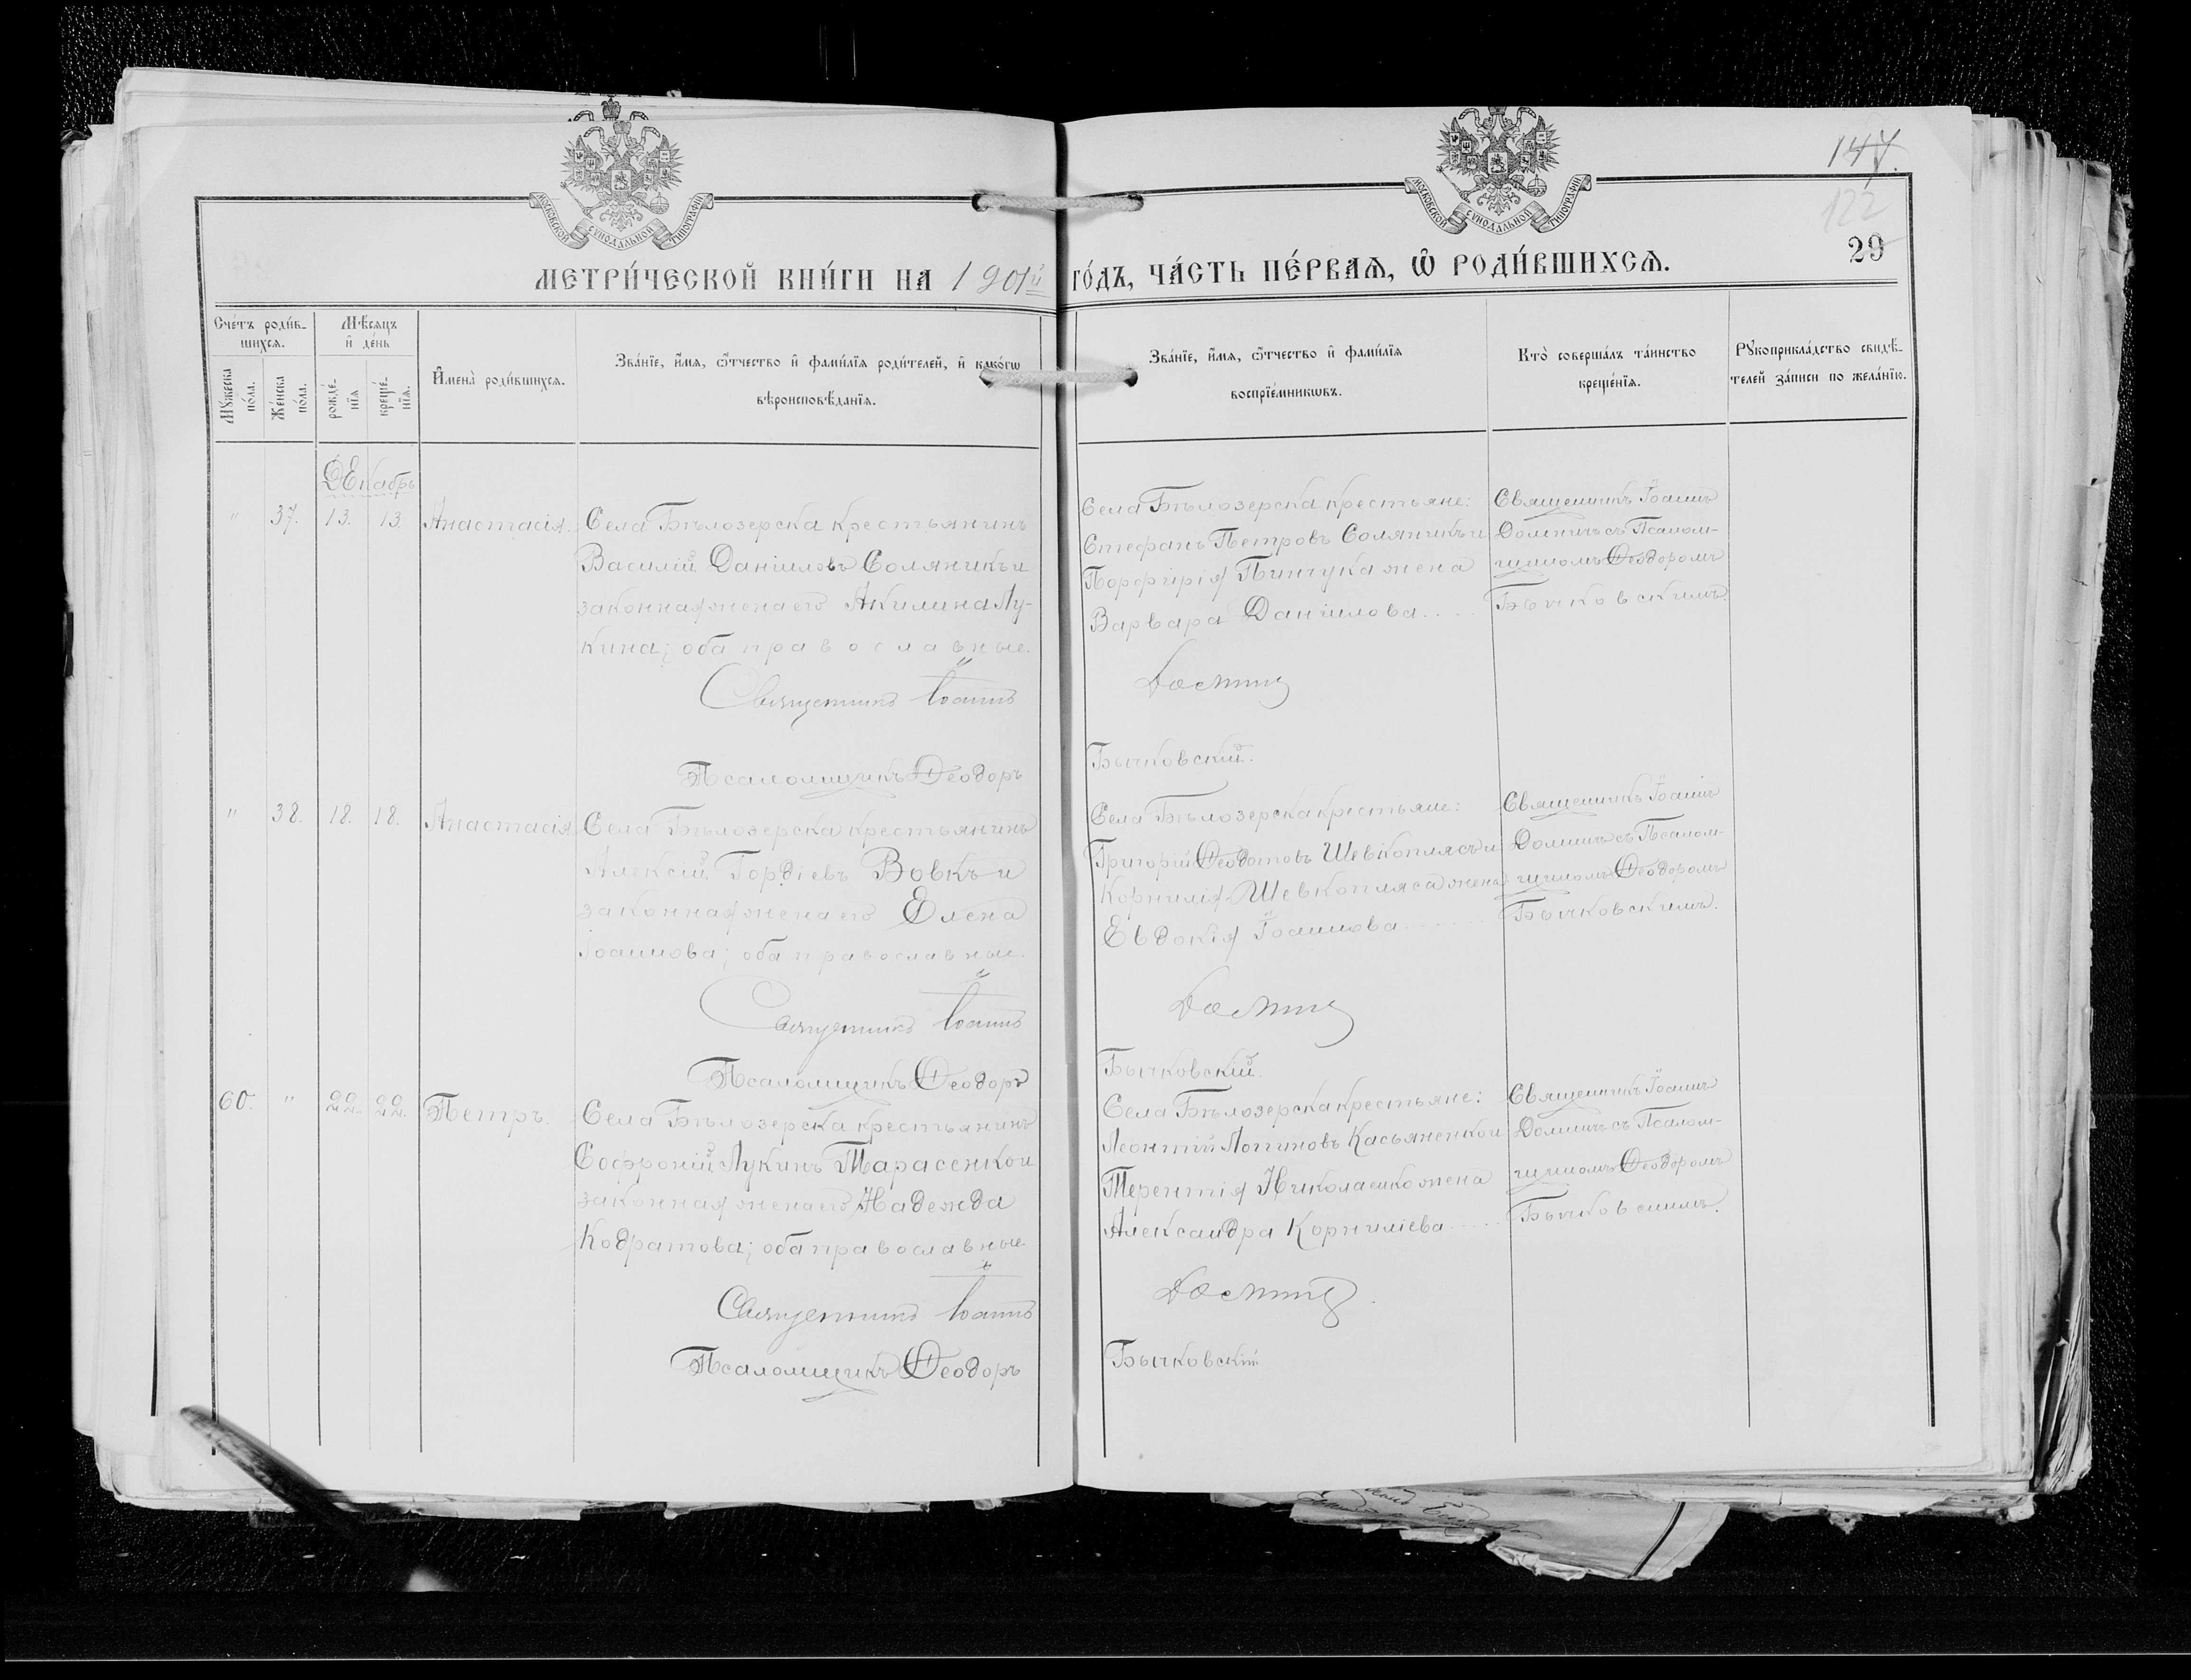 МОСКОВСКОЙ СУНОДАЛЬНОЙ ТИПОГРАФІИ
МОСКОВСКОЙ СУНОДАЛЬНОЙ ТИПОГРАФІИ
147.
122
29
МЕТРИ́ЧЕСКОЙ КНИ́ГИ НА 1901й ГО́ДЪ, ЧА́СТЬ ПЕ́РВАѦ, Ѡ РОДИ́ВШИХСѦ.
Сче́тъ роди́в-
шихсѧ.
Мꙋ́жеска по́ла.
Же́нска по́ла.
Мѣ́сѧцъ
и҆ де́нь
рожде́-
нїѧ
креще́-
нїѧ.
И҆мена̀ роди́вшихсѧ.
Зва́нїе, и҆́мѧ, ѻ҆́тчество и҆ фами́лїѧ роди́телей, и҆ како́гѡ
вѣроисповѣ́данїѧ.
Зва́нїе, и҆́мѧ, ѻ҆́тчество и҆ фами́лїѧ
воспрїе́мникѡвъ.
Кто̀ соверша́лъ та́инство
креще́нїѧ.
Рꙋкоприкла́дство свидѣ́-
телей за́писи по жела́нїю.
Декабрь
" 37. 13. 13. Анастасія.
Села Бѣлозерска крестьянинъ
Василій Даніиловъ Соляникъ и
законная жена его Акилина Лу-
кина; оба православные.
Священникъ Іоаннъ
Псаломщикъ Ѳеодоръ
Села Бѣлозерска крестьяне:
Стефанъ Петровъ Соляникъ и
Порфирія Пинчука жена
Варвара Даніилова....
Бычковскій.
Священникъ Іоаннъ
съ Псалом-
щикомъ Ѳеодоромъ
Бычковскимъ.
" 38. 18. 18. Анастасія
Села Бѣлозерска крестьянинъ
Алексій Гордіевъ Вовкъ и
законная жена его Елена
Іоаннова; оба православные.
Священникъ Іоаннъ
Псаломщикъ Ѳеодоръ
Села Бѣлозерска крестьяне:
Григорій Ѳеодотовъ Шевкоплясъ и
Корнилія Шевкопляса жена
Евдокія Іоаннова
Бычковскій.
Священникъ Іоаннъ
съ Псалом-
щикомъ Ѳеодоромъ
Бычковскимъ.
60. " 22. 22. Петръ.
Села Бѣлозерска крестьянинъ
Софроній Лукинъ Тарасенко и
законная жена его Надежда
Кодратова; оба православные
Священникъ Іоаннъ
Псаломщикъ Ѳеодоръ
Села Бѣлозерска крестьяне:
Леонтій Логиновъ Касьяненко и
Терентія Николаенко жена
Александра Корниліева
Бычковскій
Священникъ Іоаннъ
съ Псалом-
щикомъ Ѳеодоромъ
Бычковскимъ.